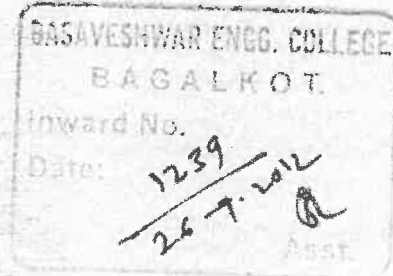 BASAVESHWAR ENGG. COLLEGE
BAGALKOT.
Inward No.
1239
Date:
26-9-2012
Asst.